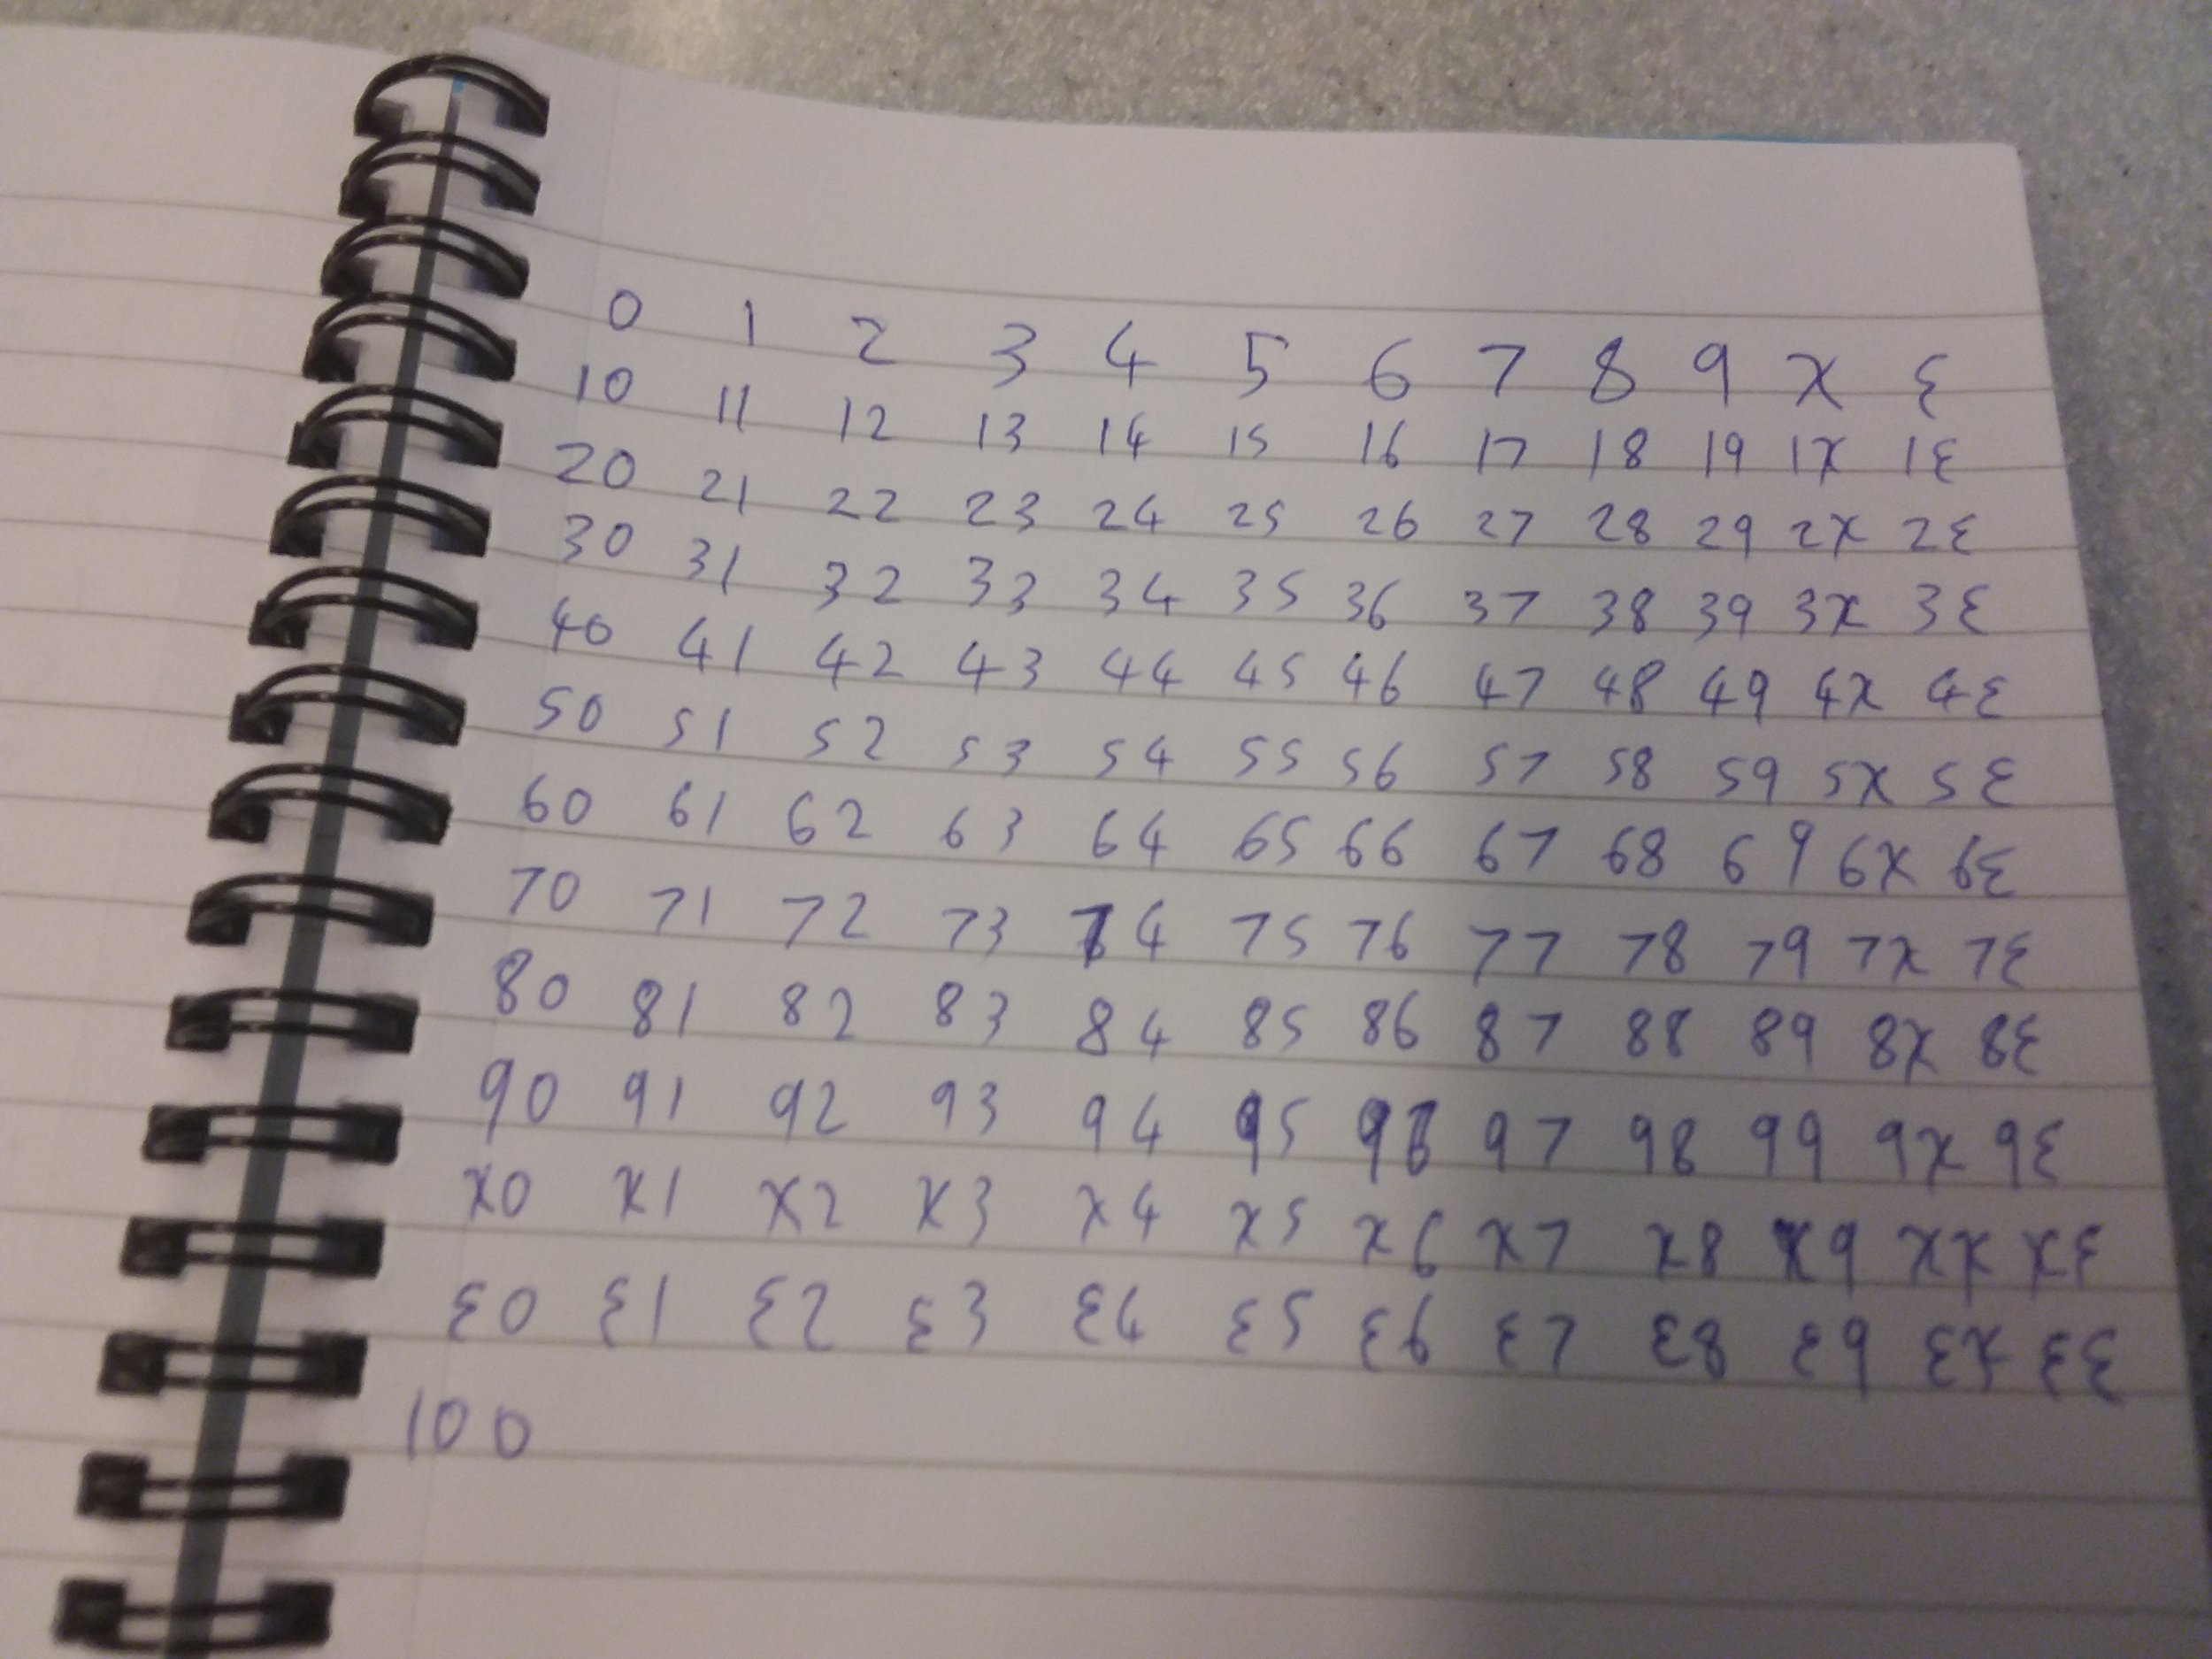 0 1 2 3 4 5 6 7 8 9 X Ɛ
10 11 12 13 14 15 16 17 18 19 1X 1Ɛ
20 21 22 23 24 25 26 27 28 29 2X 2Ɛ
30 31 32 33 34 35 36 37 38 39 3X 3Ɛ
40 41 42 43 44 45 46 47 48 49 4X 4Ɛ
50 51 52 53 54 55 56 57 58 59 5X 5Ɛ
60 61 62 63 64 65 66 67 68 69 6X 6Ɛ
70 71 72 73 74 75 76 77 78 79 7X 7Ɛ
80 81 82 83 84 85 86 87 88 89 8X 8Ɛ
90 91 92 93 94 95 96 97 98 99 9X 9Ɛ
X0 X1 X2 X3 X4 X5 X6 X7 X8 X9 XX XƐ
Ɛ0 Ɛ1 Ɛ2 Ɛ3 Ɛ4 Ɛ5 Ɛ6 Ɛ7 Ɛ8 Ɛ9 ƐX ƐƐ
100